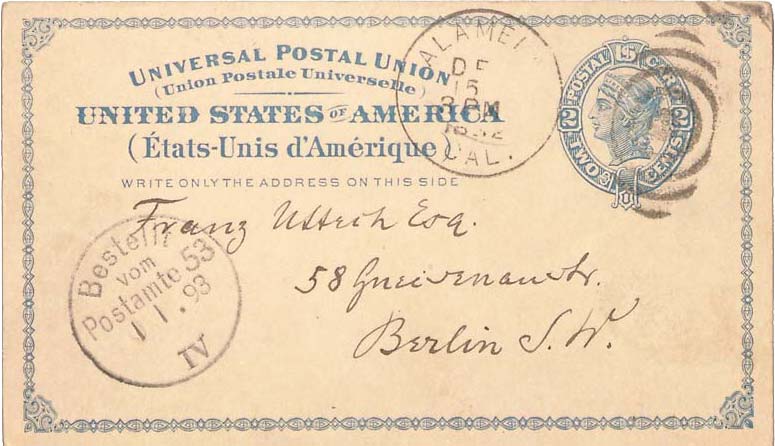 UNIVERSAL POSTAL UNION
(Union Postale Universelle)
UNITED STATES OF AMERICA
(États-Unis d'Amérique)
WRITE ONLY THE ADDRESS ON THIS SIDE
ALAME
DE
15
3 PM
1892
CAL.
POSTAL CARD
2 2
TWO CENTS
U S
Franz Uttech Esq.
58 Gneisenaustr.
Berlin S.W.
Bestellt
vom
Postamte 53
1 1 . 93
IV